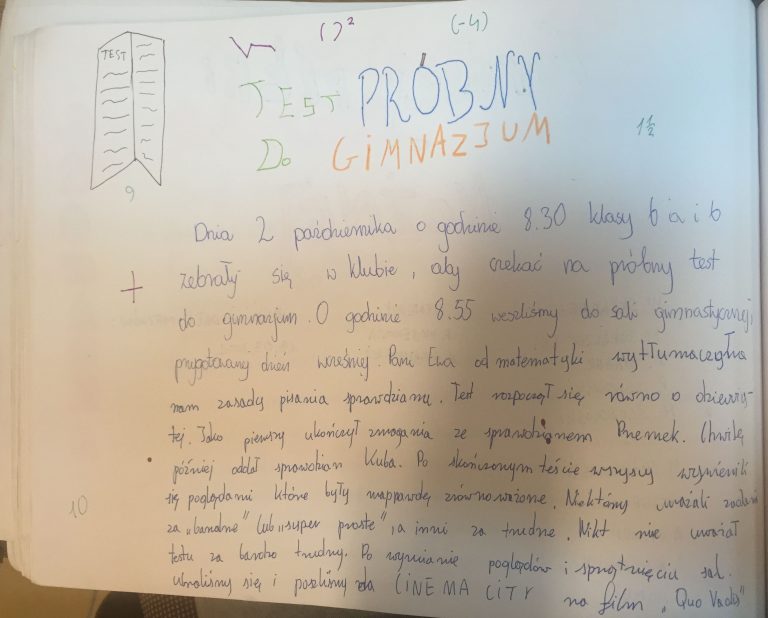 ( )²
(-4)
TEST
TEST PRÓBNY
Do GiMNAZJUM
1½
9
Dnia 2 października o godzinie 8.30 klasy 6 a i 6
+ zebrały się w klubie, aby czekać na próbny test
do gimnazjum. O godzinie 8.55 weszliśmy do sali gimnastycznej,
przygotowanej dzień wcześniej. Pani Ewa od matematyki wytłumaczyła
nam zasady pisania sprawdzianu. Test rozpoczął się równo o dziewią-
tej. Jako pierwszy ukończył zmagania ze sprawdzianem Przemek. Chwilę
później oddał sprawdzian Kuba. Po skończonym teście wszyscy wymienili
się poglądami które były naprawdę zrównoważone. Niektórzy uważali zadani
10 za „banalne" lub „super proste", a inni za trudne. Nikt nie uważał
testu za bardzo trudny. Po wymianie poglądów i sprzątnięciu sal.
ubraliśmy się i poszliśmy do CiNEMA CiTY na film „Quo Vadis"